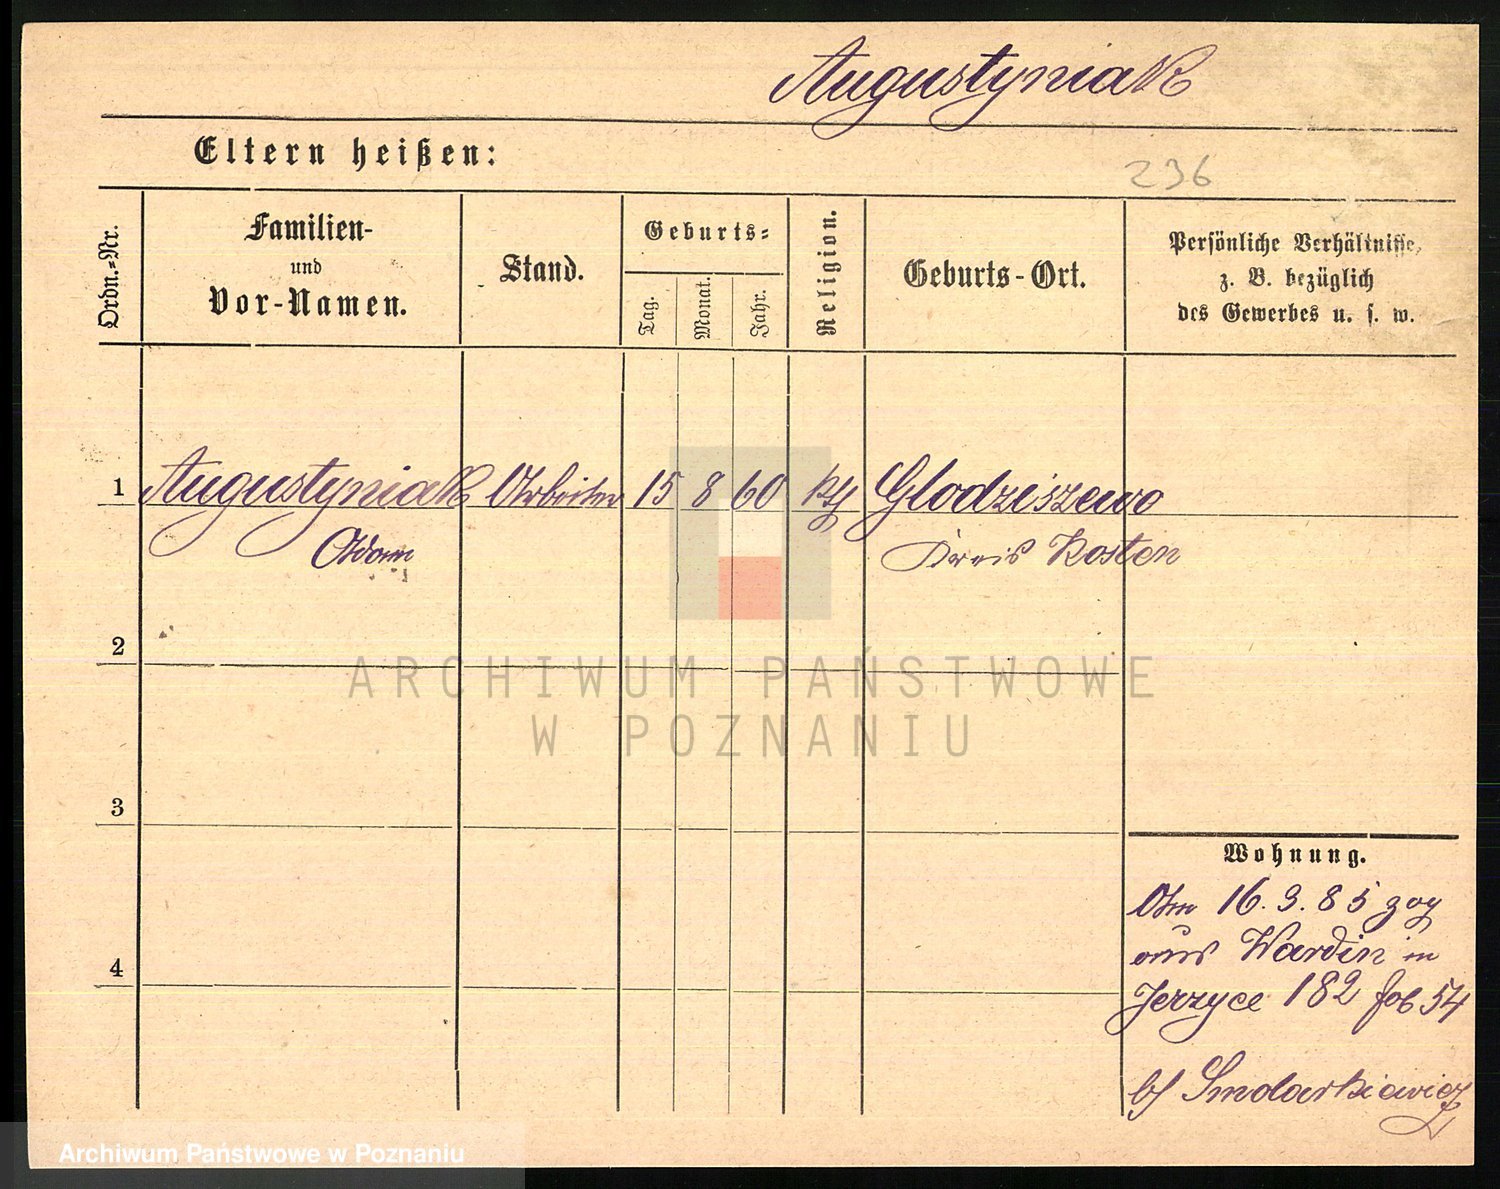 Augustyniak
Eltern heißen:
236
Ordn.-Nr.
Familien-
und
Vor-Namen.
Stand.
Geburts-
Tag.
Monat.
Jahr.
Religion.
Geburts-Ort.
Persönliche Verhältnisse,
z. B. bezüglich
des Gewerbes u. s. w.
1 Augustyniak Arbeiter 15 8 60 kth Glodziszewo
Adam Kreis Kosten
2
3
4
ARCHIWUM PAŃSTWOWE
W POZNANIU
Wohnung.
Am 16. 3. 85 zog
aus Wardin in
Jerzyce 182 fol 54
bei Smodarkiewicz
Archiwum Państwowe w Poznaniu